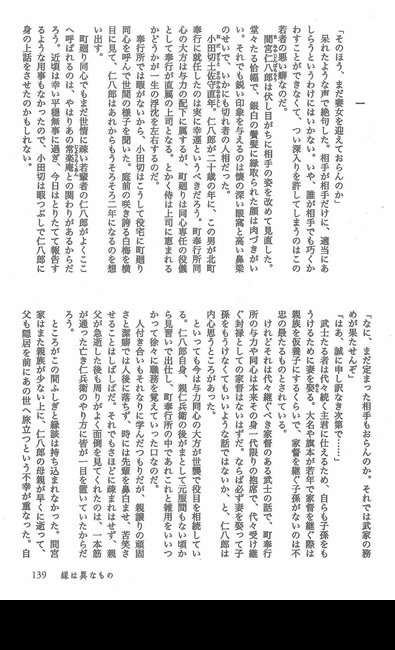 一
「そのほう、まだ妻女を迎えておらんのか」
呆れたような声で絶句した。相手が相手だけに、適当にあ
しらうというわけにはいかない。いや、誰が相手でも巧くか
わすことができなくて、つい深入りを許してしまうのはこの
若者の悪い癖なのだ。
間宮仁八郎は伏し目がちに相手の姿を改めて見直した。
堂々たる恰幅で、銀白の鬢髪に縁取られた顔は肉づきがい
い。それでも鋭い印象を与えるのは懐の深い眼窩と高い鼻梁
のせいで、いかにも切れ者の人相だった。
小田切土佐守直年。仁八郎が二十歳の年に、この男が北町
奉行に就任したのは実に幸運というべきだろう。町奉行所同
心の大方は与力の配下に属するが、町廻りは同心専任の役儀
として奉行が直属の上司となる。とかく侍は上司に恵まれる
かどうかが一生の浮沈を左右するのだ。
奉行所では暇がないから、小田切はこうして役宅に町廻り
同心を呼んで世間の様子を聞いた。庭前の咲き誇る白海を横
目に見て、仁八郎はあれからもうそろそろ二年になるのを想
い出す。
町廻り同心でもまだ世情に疎い若輩者の仁八郎がよくここ
へ呼ばれるのは、やはりあの笹楽庵との関わりがあるからだ
ろう。近頃は幸い平穏無事に過ぎ、今日はとりたてて報告す
るような用事もなかったので、小田切は暇つぶしで仁八郎に
身の上話をさせたのかもしれない。
「なに、まだ定まった相手もおらんのか。それでは武家の務
めが果たせんぞ」
「はあ、誠に申し訳なき次第で……」
武士たる者は代々続く主君に仕えるため、自らも子孫をも
うけるために妻を娶る。大名や旗本が若年で家督を継ぐ際は
親族を仮養子にするくらいで、家督を継ぐ子孫がないのは不
忠の最たるものとされている。
けれどそれは代々継ぐべき家督がある武士の話で、町奉行
所の与力や同心は本来その身一代限りの抱席で、代々受け継
ぐ封禄としての家督はないはずだ。ならば必ず妻を娶って子
孫をもうけなくてもいいような話ではないか、と、仁八郎は
内心思うところがあった。
といっても今は与力同心の大方が世襲で役目を相続してい
る。仁八郎自身、親仁兵衛の後がまとして元服間もない頃か
ら見習いで出仕し、町奉行所の中であれこれと雑用をいいつ
かって徐々に職務を覚えていった口なのだ。
人付き合いもそれなりに学んだつもりだが、親譲りの頑固
さと潔癖では人後に落ちず、時には先輩を鼻白ませ、苦笑さ
せることはしばしばだ。それでもさほどに疎まれはせず、親
父が急逝した後も周りがよく面倒を見てくれたのは、一本筋
が通った亡き仁兵衛のやり方に皆が一目を置いていたからだ
ろう。
ところがこの間ふしぎと縁談は持ち込まれなかった。間宮
家はまた親族が少ない上に、仁八郎の母親が早くに逝って、
父も隠居を前にあの世へ旅立つという不幸が重なった。自
139 縁は異なもの